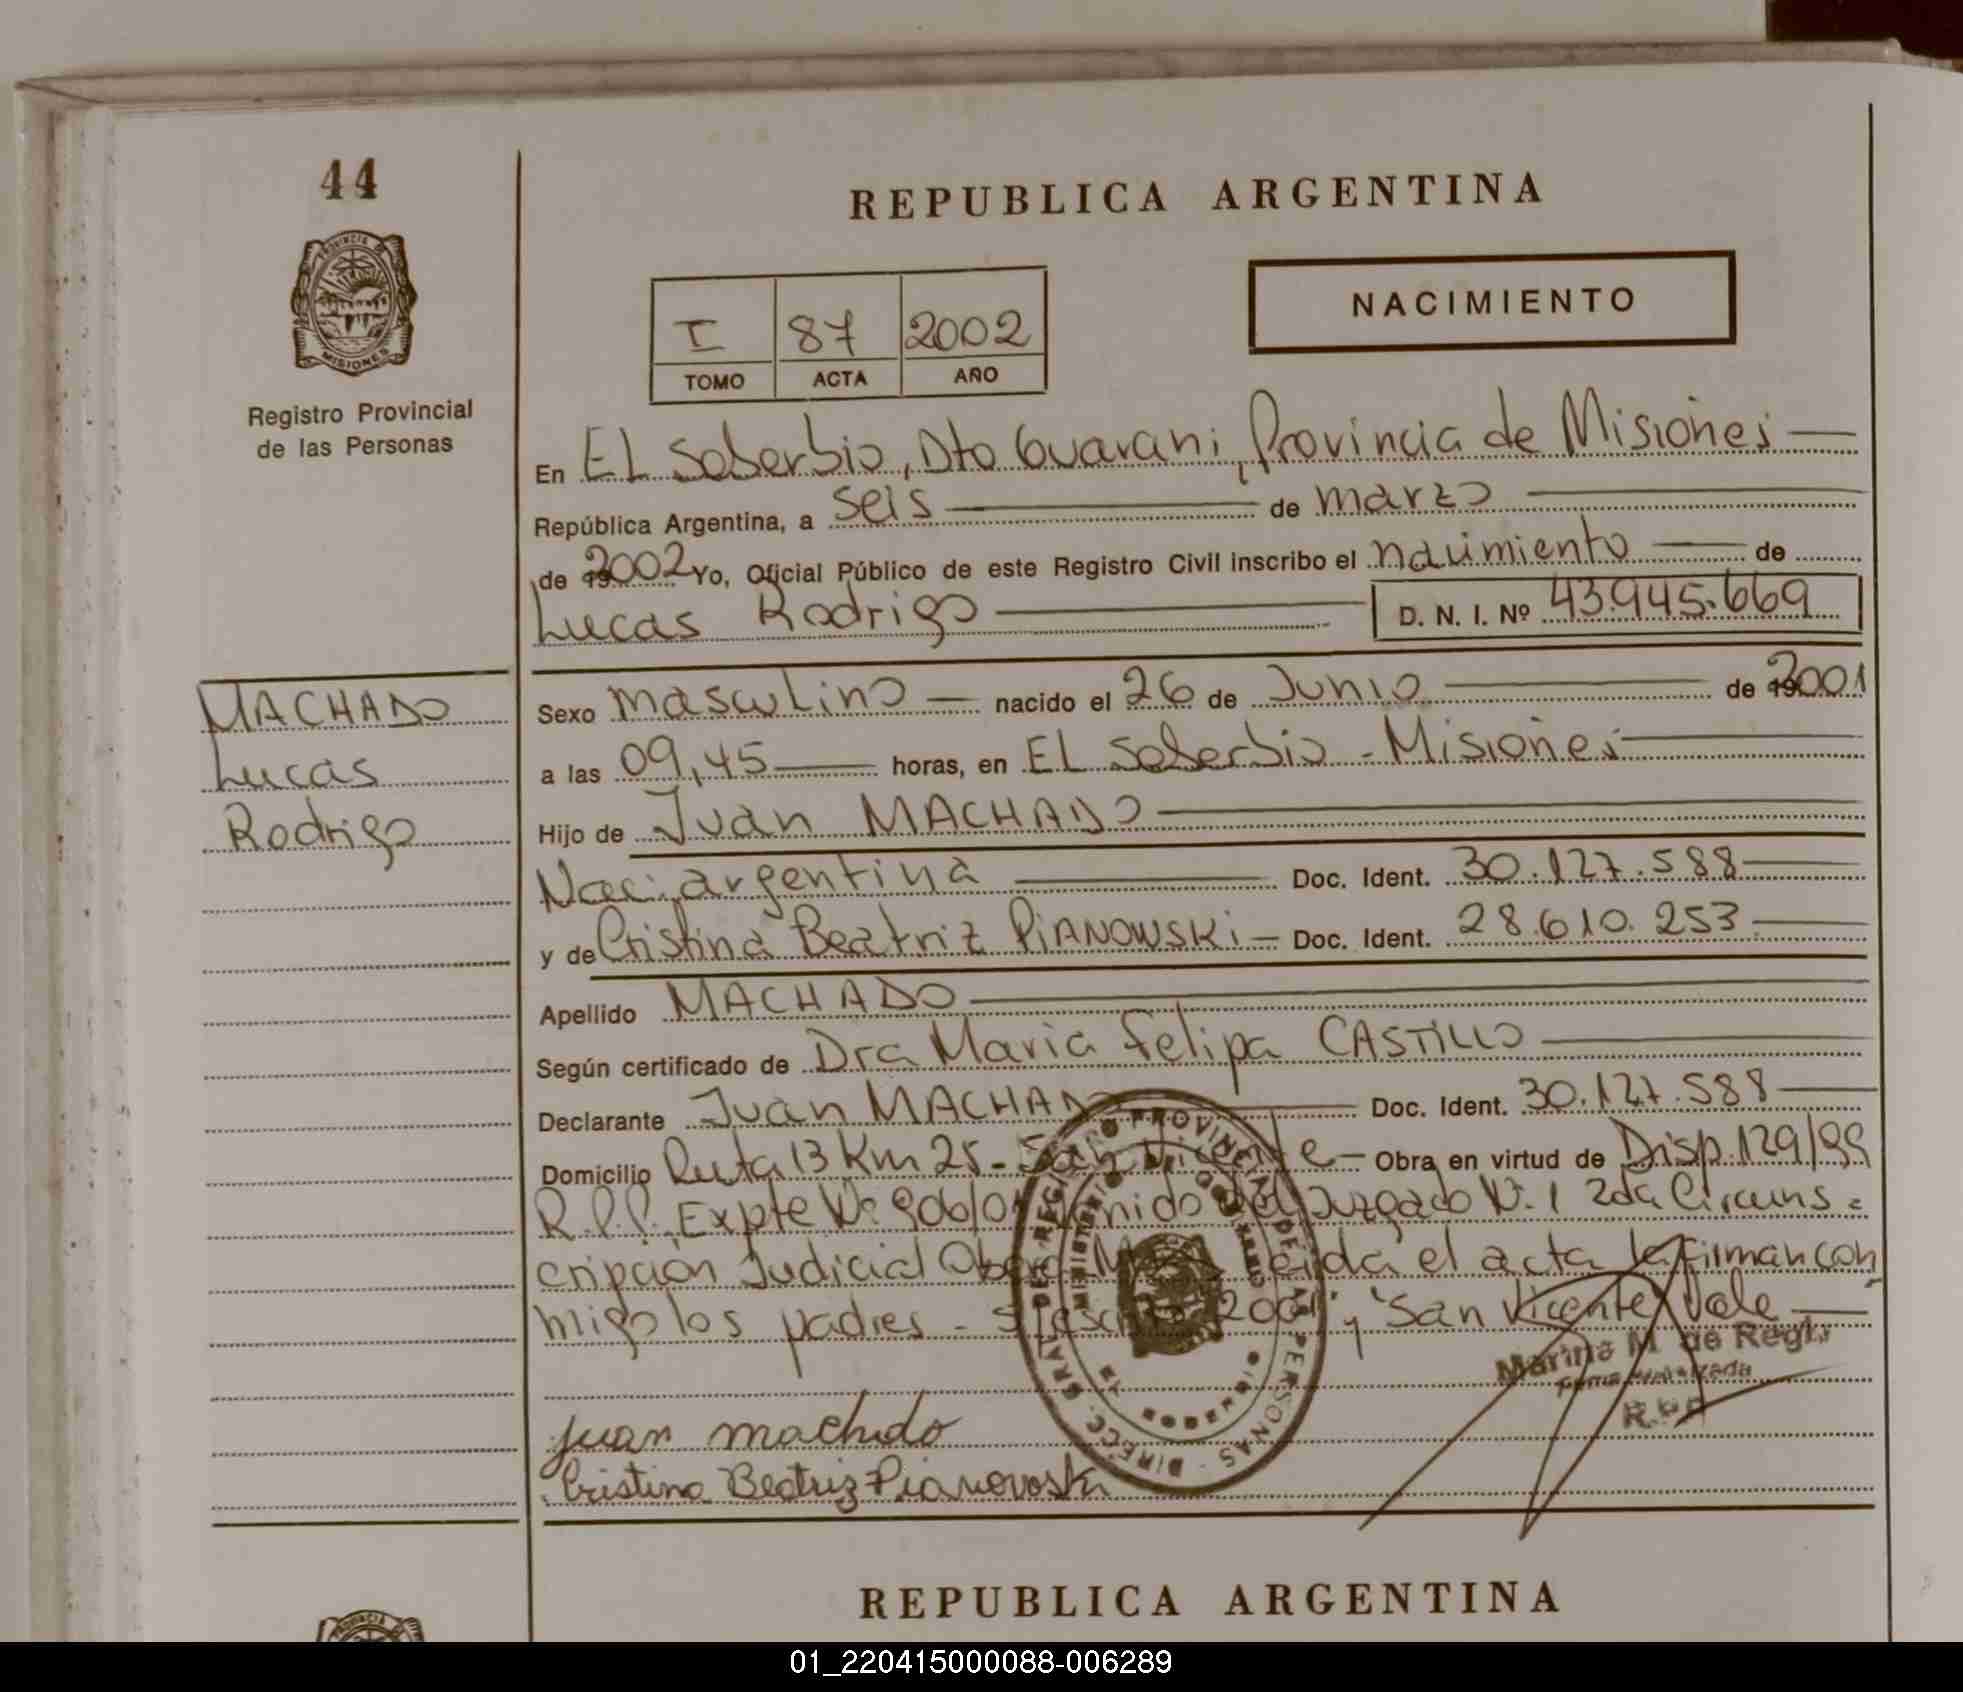 44
REPUBLICA ARGENTINA
PROVINCIA DE
MISIONES
Registro Provincial
de las Personas
I 87 2002
TOMO ACTA AÑO
NACIMIENTO
En El Soberbio, Dto Guarani, Provincia de Misiones
República Argentina, a seis de marzo
de 2002 Yo, Oficial Público de este Registro Civil inscribo el nacimiento de
Lucas Rodrigo D. N. I. Nº 43.945.669
MACHADO
Lucas
Rodrigo
Sexo masculino nacido el 26 de Junio de 2001
a las 09,45 horas, en El Soberbio - Misiones
Hijo de Juan MACHADO
Nac: argentina Doc. Ident. 30.127.588
y de Cristina Beatriz PIANOWSKI Doc. Ident. 28.610.253
Apellido MACHADO
Según certificado de Dra Maria Felipa CASTILLO
Declarante Juan MACHADO Doc. Ident. 30.127.588
Domicilio Ruta 13 Km 25 - San Vicente - Obra en virtud de Disp. 129/99
R.P.P. Expte Nº 906/01 del Juzgado Nº 1 2da Circuns=
cripción Judicial el acta la firman con
migo los padres - 2001 y "San Vicente" Vale
Marina M. de Regl
Firma Autorizada
R.P.P.
juan machado
Cristina Beatriz Pianovoski
DIRECC. GRAL. DEL REGISTRO PROVINCIAL DE LAS PERSONAS
MINISTERIO DE GOBIERNO
REPUBLICA ARGENTINA
PROVINCIA
01_220415000088-006289